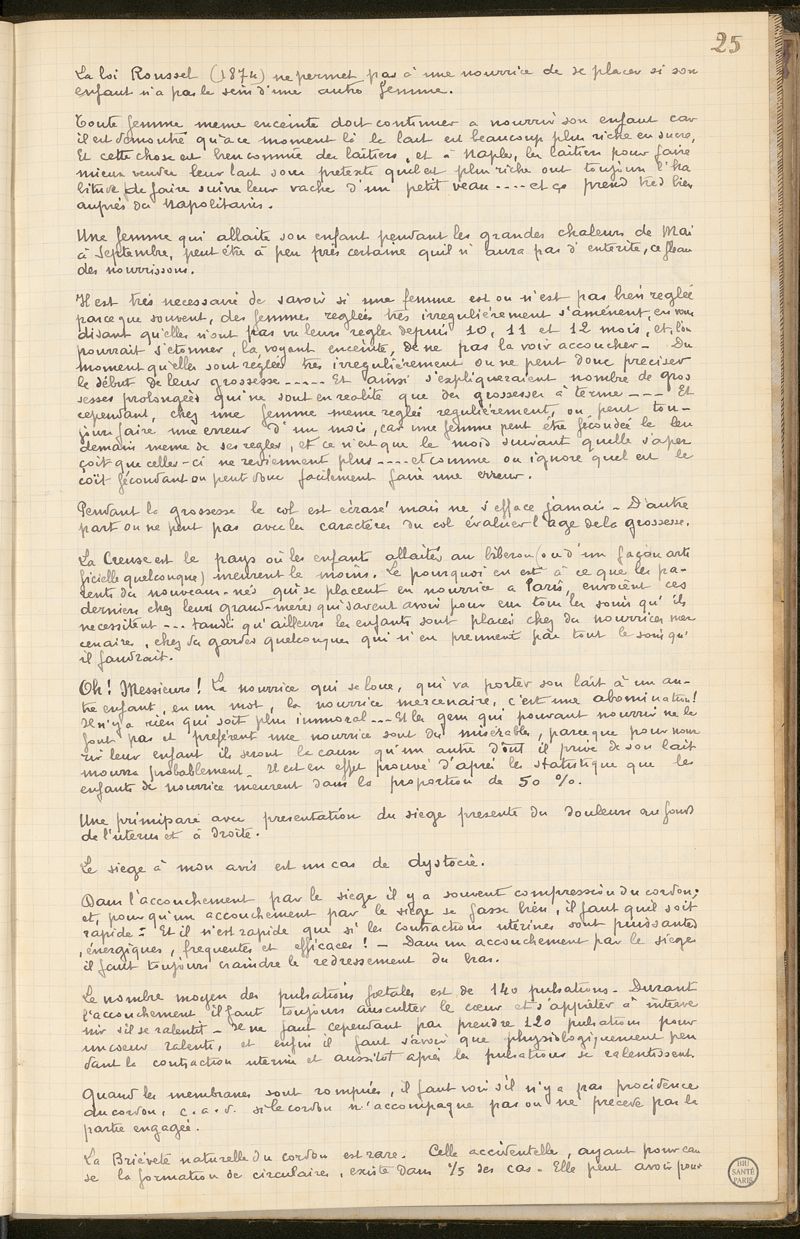 25
La loi Roussel (1874) ne permet pas à une nourrice de se placer si son
enfant n'a pas le sein d'une autre femme.
Toute femme meme enceinte doit continuer a nourrir son enfant car
il est démontré qu'a ce moment là le lait est beaucoup plus riche en sucre,
Et cette chose est bien connue des laitiers, et à Naples, les laitiers pour faire
mieux vendre leur lait sous pretexte quil est plus riche ont toujours l'ha
bitude de faire suivre leur vache d'un petit veau .... et ça prend très bien
auprés des Napolitains.
Une femme qui allaite son enfant pendant les grandes chaleurs de Mai
à Septembre, peut être à peu prés certaine quil n'aura pas d'enterite, ce fleau
des nourrissons.
Il est trés necessaire de savoir si une femme est ou n'est pas bien reglée
parce que souvent, des femmes reglées trés irregulièrement s'amènent, en vous
disant qu'elles n'ont pas vu leurs regles depuis 10, 11 et 12 mois, et l'on
pourrait s'etonner, la voyant enceinte, de ne pas la voir accoucher - Du
moment qu'elles sont reglées tres irregulièrement on ne peut donc preciser
le début de leur grossesse ----- Et ainsi s'expliqueraient nombre de gros
sesses prolongées qui ne sont en realité que des grossesses à terme --- Et
cependant, chez une femme meme reglée regulièrement, on peut tou-
jours faire une erreur d'un mois, car une femme peut être fécondée le len
demain meme de ses regles, et ce n'est que le mois suivant quelle s'aper
çoit que celles-ci ne reviennent plus .... et comme on ignore quel est le
coït fécondant on peut donc facilement faire une erreur.
Pendant la grossesse le col est écrasé mais ne s'efface jamais - D'autre
part on ne peut pas avec les caractères du col évaluer l'age de la grossesse.
La Creuse est le pays où les enfants allaités au biberon (ou d'un façon arti
ficielle quelconque) meurent le moins. Le pourquoi en est à ce que les pa-
rents des nouveau-nés qui se placent en nourrice a Paris, envoient ces
derniers chez leurs grand-mères qui savent avoir pour eux tous les soins qu'ils
necessitent --- tandis qu'ailleurs les enfants sont placés chez des nourrices mer
cenaires, chez des gardes quelconques qui n'en prennent pas tout le soin qu'
il faudrait.
Oh! Messieurs! La nourrice qui se loue, qui va porter son lait à un au-
tre enfant, en un mot, la nourrice mercenaire, c'est une abomination!
Il n'y a rien qui soit plus immoral --- Et les gens qui pouvant nourrir ne le
font pas et preferent une nourrice sont des misérables, parce que pour nour
rir leur enfant ils seront la cause qu'un autre dont il prive de son lait
mourra probablement - Il est en effet prouvé d'aprés les statistique que les
enfants de nourrice meurent dans la proportion de 50 %.
Une primipare avec presentation du siege presente des douleurs au fond
de l'uterus et à droite.
Le siege à mon avis est un cas de dystocie.
Dans l'accouchement par le siege il y a souvent compression du cordon;
et, pour qu'un accouchement par le siège se fasse bien, il faut quil soit
rapide: Et il n'est rapide que si les contractions utérines sont puissantes
, énergiques, frequentes et efficaces! - Dans un accouchement par le siege
il faut toujours craindre le redressement du bras.
Le nombre moyen des pulsations fœtales est de 140 pulsations - Durant
l'accouchement il faut toujours ausculter le cœur et s'apprêter à interve
nir s'il se ralentit - Il ne faut cependant pas prendre 120 pulsations pour
un cœur ralenti, et enfin il faut savoir que physiologiquement pen
dant la contraction uterine et aussitot aprés les pulsations se ralentissent.
Quand les membranes sont rompues, il faut voir s'il n'y a pas procidence
du cordon, c.a.d. si le cordon n'accompagne pas ou ne precede pas la
partie engagée.
La Brièveté naturelle du cordon est rare. Celle accidentelle, ayant pour cau
se la formation de circulaires, existe dans 1/5 des cas - Elle peut avoir pour
BIU
SANTÉ
PARIS